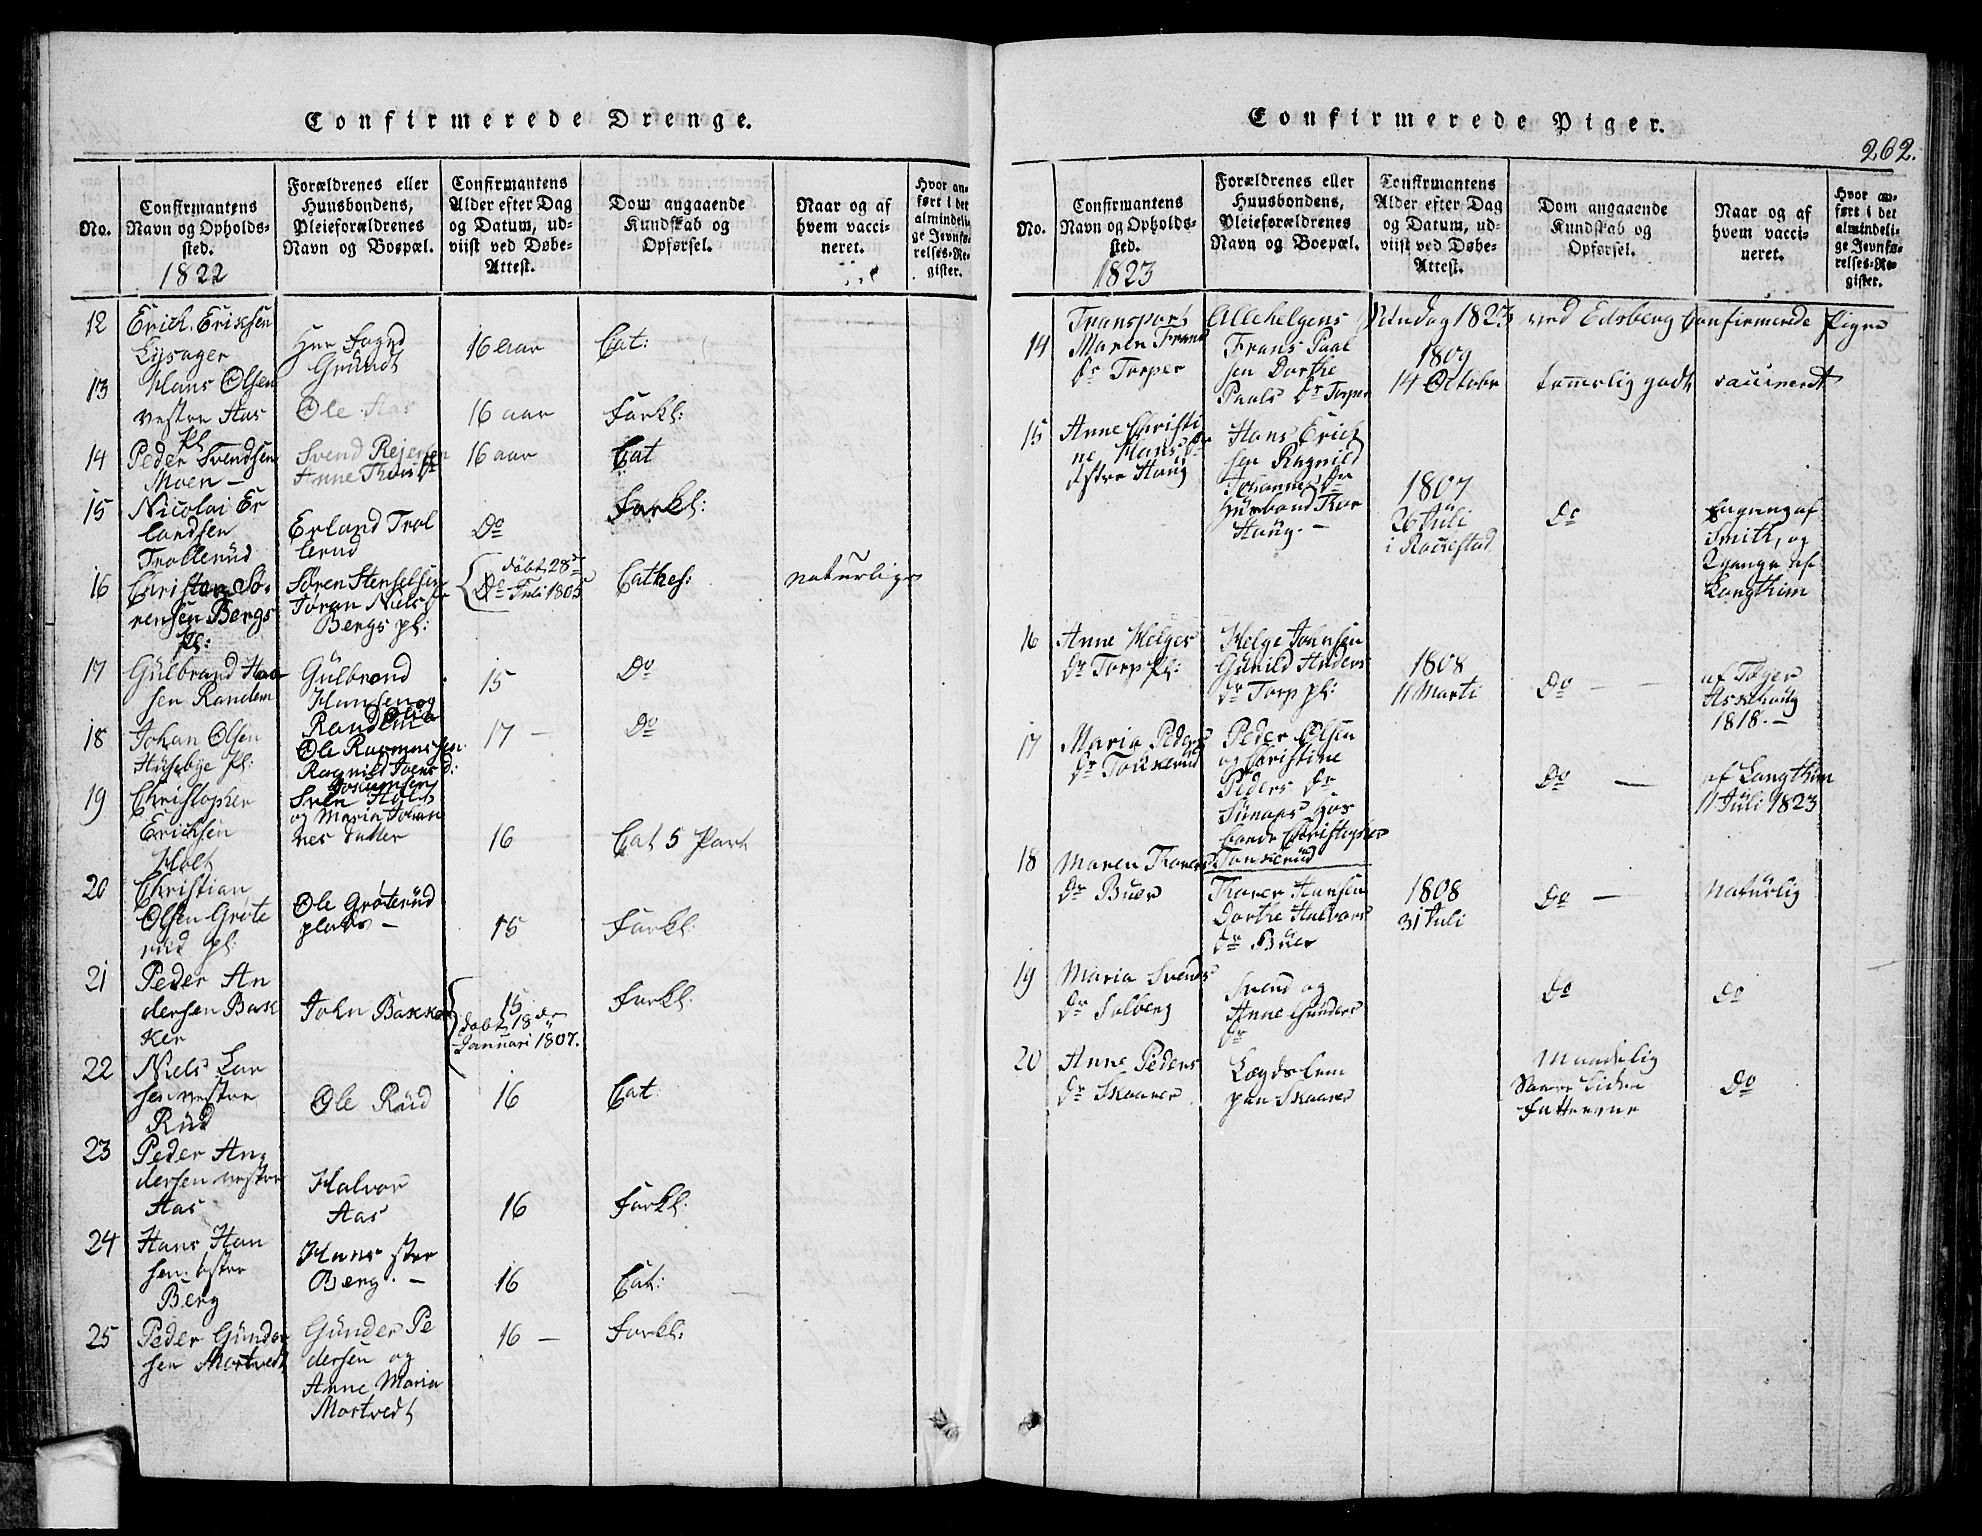 Confirmerede Drenge.
No.
Confirmantens
Navn og Opholds-
sted.
1822
Forældrenes eller
Huusbondens,
Pleieforældrenes
Navn og Boepæl.
Confirmantens
Alder efter Dag
og Datum, ud-
viist ved Døbe-
Attest.
Dom angaaende
Kundskab og
Opførsel.
Naar og af
hvem vacci-
neret.
Hvor an-
ført i det
almindeli-
ge Jevnfø-
relses-Re-
gister.
12
Erich Erichsen
Lysager
Grundt
16 aar
Cat:
13
Hans Olsen
vestre Aas
pl
Ole Aas
16 aar
Forkl:
14
Peder Svendsen
Moen —
Svend Rejersen
Anne
16 aar
Cat
15
Nicolai Er
landsen
Trollerud
Erland Trol
lerud
Do
Forkl:
16
Christen Sö-
rensen Bergs
pl:
Sören Stenselsen
Jöran Niels Dr
Bergs pl:
döbt 28de
Do Juli 1805
Cathes:
naturlige
17
Gulbrand Han
sen Randem
Gulbrand
Hansen og
Randem
15
Do
18
Johan Olsen
Husebye pl:
Ole Rasmussen
Ragnild Joens d:
17 —
Do
19
Christopher
Erichsen
Holt
og Maria Johan
nes Datter
16
Cat 5 Part
20
Christian
Olsen Gröte
rud pl:
Ole Gröterud
plads —
15
Forkl:
21
Peder An
dersen Bak
ker
John Bakker
15
döbt 18de
Januari 1807.
Forkl:
22
Niels Lar
sen vestre
Rud
Ole Rud
16
Cat:
23
Peder An
dersen vestre
Aas
Halvor
Aas
16
Forkl:
24
Hans Han
sen østre
Berg
Hans østre
Berg. —
16
Cat:
25
Peder Gunder
sen Mortvedt
Gunder Pe
dersen og
Anne Maria
Mortvedt
16 —
Forkl:
Confirmerede Piger.
262.
No.
Confirmantens
Navn og Opholds-
sted.
1823
Forældrenes eller
Huusbondens,
Pleieforældrenes
Navn og Boepæl.
Confirmantens
Alder efter Dag
og Datum, ud-
viist ved Døbe-
Attest.
Dom angaaende
Kundskab og
Opførsel.
Naar og af
hvem vacci-
neret.
Hvor an-
ført i det
almindeli-
ge Jevnfø-
relses-Re-
gister.
Transport Allehelgens Søndag 1823 ved Edsberg Confirmerede Pigers
14
Maren Frans
Dr Torper
Frans Paal
sen Dorthe
Paals Dr Torper
1809
14 October
temmelig godt
vaccineret
15
Anne Christi
ne Hans Dr
østre Haug
Hans Erich
sen Ragnild
Johannes Dr
Huusbond Thor
Haug. —
1807
26 Juli
i Rakkestad
Do
engang af
Smith, og
2 gange af
Langthim
16
Anne Helges
Dr Torp pl:
Helge Johnsen
Gunild Anders
Dr Torp pl:
1808
11 Marti
Do —
af Töger
Askehoug
1818. —
17
Maria Peders
Dr Tonkerud
Peder Olsen
og Christine
Peders Dr
Christopher
Tonkerud
Do —
af Langthim
11 Juli 1823
18
Maren Thorers
Dr Buer
Thorer Hansen
Dorthe Halvors
Dr Buer
1808
31 Juli
Do —
Naturlig
19
Maria Svends
Dr Solberg
Svend og
Anne Gunders
Dr
Do
Do
20
Anne Peders
Dr Skaarer
Lægdslem
paa Skaarer
Maadelig
Do